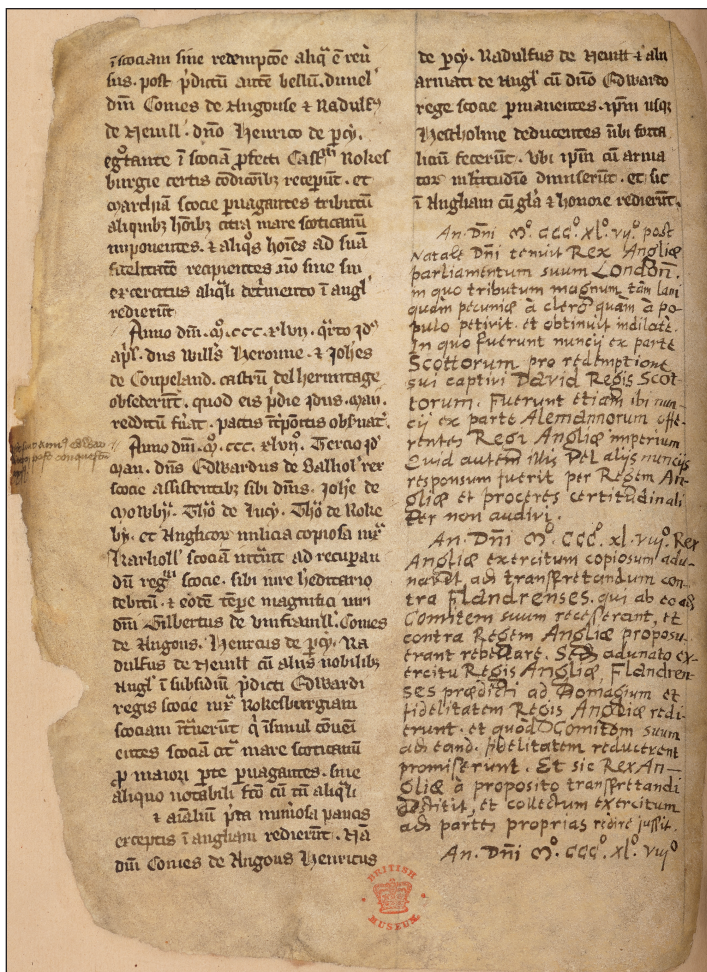 ī scociam sine redempc̄oe aliq̄ ē reū
sus. post p̄dictū autē bellū. dunel'
dn̄i Comes de Angouse & Radulf9
de Neuill'. dn̄o Henrico de p̄cy.
egrotante ī scociam p̄fecti Castrū Rokes
burgie certis cōdiconibȝ receperūt. et
marchiā scocie puagantes tributū
aliquibȝ hoībȝ citra mare scoticanū
imponentes. & aliqs hoīes ad suā
fidelitatē recipientes nō sine sui
exercitus aliq̄li det'mento ī angl'
redierūt
Anno dn̄i. mº. ccc. xlvij. q̄rto id'
ap'l. dn̄s Will's Heronne. & Joh'es
de Coupeland. castrū del hermitage
obsederūt. quod eis p̄die idus. maii.
redditū fuat. pactis
Anno dn̄i. mº. ccc. xlvij. Tercio id'
maii. dn̄s Edwardus de Balliol' rex
scocie assistentibȝ sibi dn̄is. Joh'e de
mowbȳ. Tho' de lucy. Tho' de Roke
by. et Anglicor milicia copiosa iux̄
Karlioll' scociā intūt ad recupan
dū regn̄ scocie. sibi iure heditario
debitū. & eodē tēpe magnifici uiri
dn̄i Gilbertus de vmfrauill'. Comes
de Angous. Henricus de p̄cy. Ra
dulfus de Neuill cū aliis nobilibȝ
Angl' ī subsidiū p̄dicti Edwardi
regis scocie iux̄ Rokesburgiam
scociam īt'uerūt. q̄ īsimul cōueni
entes scociā cit' mare scoticanū
p̄ maiori p̄te puagantes. sine
aliquo notabili fc̄o cū tn̄ aliq̄li
& aīaliū p̄da num'osa paucis
exceptis ī angliam redierūt. Nā
dn̄i Comes de Angous Henricus
de p̄cy. Radulfus de Neuill & alii
armati de Angl' cū dn̄o Edwardo
rege scocie p̄manentes. ip̄m usq̄
Hestholme deducentes ūbi forta
liciū fecerūt. Vbi ip̄m cū arma
tor mltitudīe dimiserūt. et sic
ī Angliam cū gl'a & honore redierūt.
An. Dn̄i Mº. CCCº. XLº. vijº. post
Natale Dn̄i tenuit Rex Angliæ
parliamentum suum London̄.
in quo tributum magnum tàm lani
quàm pecuniæ à clero quàm à po-
pulo petivit. et obtinuit indilatè.
In quo fuerunt nuncij ex parte
Scottorum pro redemptione
sui captivi David Regis Scot-
torum. Fuerunt etiam ibi nun-
cij ex parte Alemannorum offe-
rentes Regi Angliæ imperium
Quid autem illis vel alijs nuncijs
responsum fuerit per Regem An-
gliæ et proceres certitudinali
ter non audivi.
An. Dn̄i Mº. CCCº. xl. viijº. Rex
Angliæ exercitum copiosum adu-
navit, ad transfretandum con-
tra Flandrenses. qui ab eo ad
Comitem suum recesserant, et
contra Regem Angliæ proposu-
erant rebellare. Sed adunato ex-
ercitu Regis Angliæ, Flandren-
ses prædicti ad Homagium et
fidelitatem Regis Angliæ redi-
erunt. et quòd Comitem suum
ad eand. fidelitatem reducerent
promiserunt. Et sic Rex An-
gliæ à proposito transfretandi
destitit, et collectum exercitum
ad partes proprias redire jussit.
An. Dn̄i Mº. CCCº. XLº. viijº
BRITISH MUSEUM